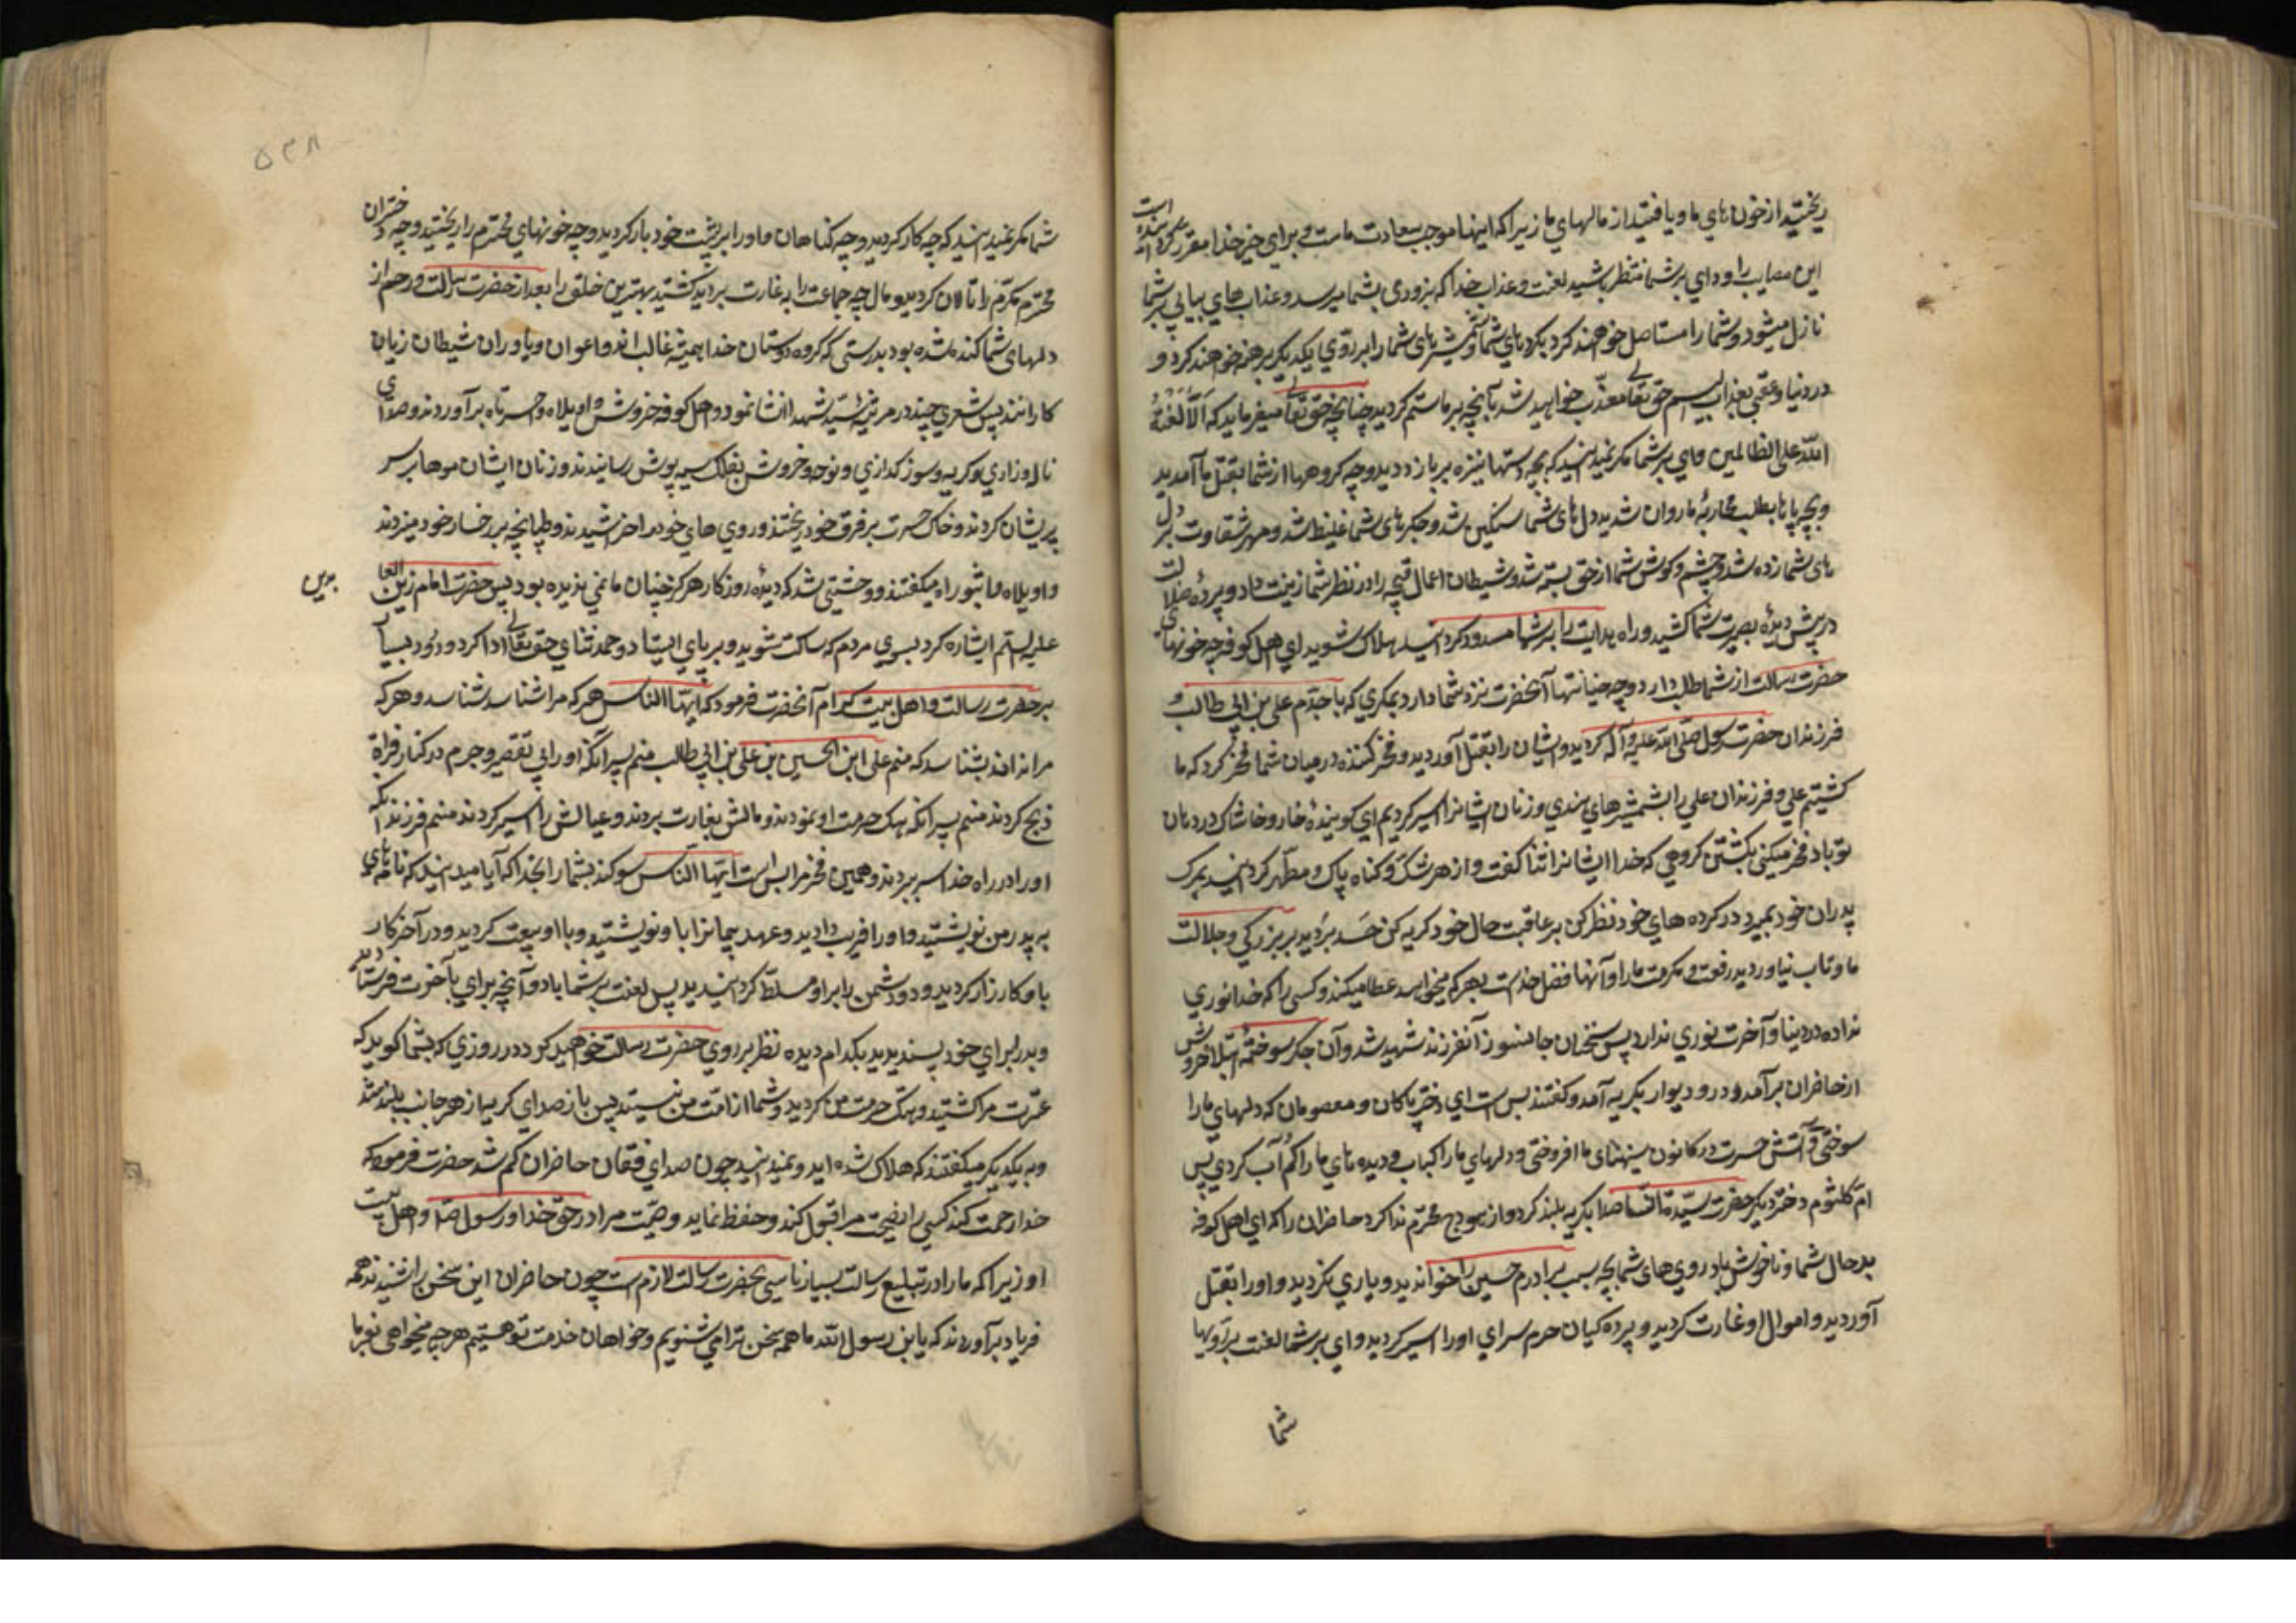 ریختید از خون های ما و یافتید از مالهای ما زیرا که اینها موجب سعادت ماست و برای خیر خدا مقرر گردانیده است
این مصایب را و وای بر شما منتظر باشید لعنت و عذاب خدا که بزودی بشما میرسد و عذاب های پیاپی بر شما
نازل میشود و شما را مستاصل خواهند کرد بکردهای شما و شمشیرهای شما را بر روی یکدیگر برهنه خواهند کرد و
در دنیا و عقبی بعذاب الیم حق تعالی معذب خواهید شد بآنچه بر ما ستم کردید چنانچه حق تعالی میفرماید که الا لعنة
الله علی الظالمین وای بر شما مگر نمیدانید که بچه دستها نیزه بر ما زدید و چه گروهها از شما بقتل ما آمدید
و بچه پاها بطلب محاربهٔ ما روان شدید دل های شما سنگین شد و جگرهای شما غلیظ شد و مهر شقاوت بر دل
های شما زده شد و چشم و گوش شما از حق بسته شد و شیطان اعمال قبیحه را در نظر شما زینت داد و پردهٔ ضلالت
در پیش دیدهٔ بصیرت شما کشید و راه هدایت را بر شما مسدود گردانید هلاک شوید ای اهل کوفه چه خونهای
حضرت رسالت از شما طلب دارد و چه خیانتها آنحضرت نزد شما دارد بمکری که با جدم علی بن ابی طالب و
فرزندان حضرت رسول صلی الله علیه و آله کردید و ایشان را بقتل آوردید و فخر کننده در میان شما فخر کرد که ما
کشتیم علی و فرزندان علی را بشمشیرهای هندی و زنان ایشانرا اسیر کردیم ای گویندهٔ خار و خاشاک در دهان
تو باد فخر میکنی بکشتن گروهی که خدا ایشانرا ثنا گفت و از هر شک و گناه پاک و مطهر گردانید بمرک
پدران خود بمیرد در کرده های خود نظر کن بر عاقبت حال خود گریه کن حسد بردید بر بزرگی و جلالت
ما و تاب نیاوردید رفعت و مکرمت ما را و آنها فضل خداست بهر که میخواهد عطا میکند و کسی را که خدا نوری
نداده در دنیا و آخرت نوری ندارد پس سخنان جانسوز آنفرزند شهید شد و آن جگر سوخته ابتلا خروش
از حاضران برآمد و در و دیوار بگریه آمد و گفتند بس است ای دختر پاکان و معصومان که دلهای ما را
سوختی و آتش حسرت در کانون سینهای ما افروختی و دلهای ما را کباب و دیده های ما را کم آب کردی پس
ام کلثوم دختر دیگر حضرت سیدة النسا صدا بگریه بلند کرد و از هودج محترم ندا کرد حاضران را که ای اهل کوفه
بد حال شما و ناخوش باد روی های شما بچه سبب برادرم حسین را خواندید و یاری نکردید و او را بقتل
آوردید و اموال او غارت کردید و پرده کیان حرم سرای او را اسیر کردید وای بر شما لعنت بر رویهای
شما
۵۳۸
شما مگر نمیدانید که چه کار کردید و چه گناهان و اوزار بر پشت خود بار کردید و چه خونهای محترم را ریختید و چه دختران
محترم مکرم را نالان کردید و مال چه جماعت را به غارت بردید کشتید بهترین خلق را بعد از حضرت رسالت و رحم از
دلهای شما کنده شده بود بدرستی که گروه دوستان خدا همیشه غالب اند و اعوان و یاوران شیطان زیان
کارانند پس شعری چند در مرثیهٔ سید شهدا انشا نمود و اهل کوفه خروش و اویلاه و احسرتاه برآوردند و صدای
ناله و زاری و گریه و سوز گدازی و نوحه و خروش بفلک سیه پوش رسانیدند و زنان ایشان موها بر سر
پریشان کردند و خاک حسرت بر فرق خود ریختند و روی های خود را خراشیدند و طپانچه بر رخسار خود میزدند
و اویلاه و اثبوراه میگفتند و وحشتی شد که دیدهٔ روزگار هرگز چنان ماتمی ندیده بود پس حضرت امام زین العابدین
علیه السلام اشاره کرد بسوی مردم که ساکت شوید و بر پای ایستاد و حمد ثنای حق تعالی ادا کرد و درود بسیار
بر حضرت رسالت و اهل بیت کرام آنحضرت فرمود که ایها الناس هر که مرا شناسد شناسد و هر که
مرا نداند بشناسد که منم علی ابن الحسین بن علی بن ابی طالب منم پسر آنکه او را بی تقصیر و جرم در کنار فرات
ذبح کردند منم پسر آنکه هتک حرمت او نمودند و مالش بغارت بردند و عیالش را اسیر کردند منم فرزند آنکه
او را در راه خدا سر بریدند و همین فخر مرا بس است ایها الناس سوگند بشما را بخدا که آیا میدانید که نامه های
به پدر من نویشتید و او را فریب دادید و عهد پیمانرا با او نویشتید و با او بیعت کردید و در آخر کار
با او کارزار کردید و دشمن را بر او مسلط گردانیدید پس لعنت بر شما باد و آنچه برای بآخرت فرستادید
و بد رای برای خود پسندیدید بکدام دیده نظر بر روی حضرت رسالت خواهید کرد در روزی که بشما گوید که
عترت مرا کشتید و هتک حرمت من کردید و شما از امت من نیستید پس باز صدای گریه از هر جانب بلند شد
و به یکدیگر میگفتند که هلاک شده اید و نمیدانید چون صدای فغان حاضران کم شد حضرت فرمود که
خدا رحمت کند کسی را نصیحت مرا قبول کند و حفظ نماید وصیت مرا در حق خدا و رسول خدا و اهل بیت
او زیرا که ما را در تبلیغ رسالت بسیار تاسی بحضرت رسالت لازم است چون حاضران این سخن را شنیدند همه
فریاد برآوردند که یابن رسول الله ما همه سخن ترا می شنویم و خواهان خدمت تو هستیم هر چه میخواهی بفرما